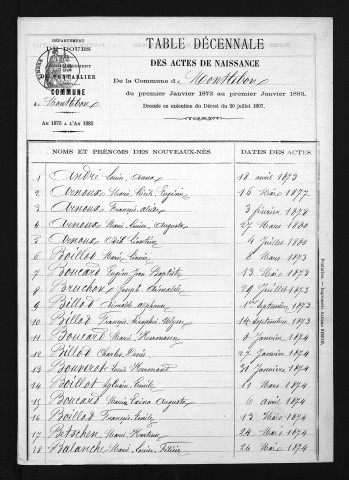 DÉPARTEMENT
DU DOUBS
ARRONDISSEMENT
DE PONTARLIER
COMMUNE
de Montlebon
AN 1873 A L'AN 1883
TABLE DÉCENNALE
DES ACTES DE NAISSANCE
De la Commune de Montlebon
du premier Janvier 1873 au premier Janvier 1883.
Dressée en exécution du Décret du 20 juillet 1807.
NOMS ET PRÉNOMS DES NOUVEAUX-NÉS DATES DES ACTES
1 André Louis 18 avril 1873
2 Arnoux Marie Eugénie 16 Mars 1877
3 Arnoux François 3 février 1878
4 Arnoux Marie Louise Augusta 27 Mars 1880
5 Arnoux 4 Juillet 1880
6 Boillot Marie 8 Mars 1873
7 Boucard Eugène Jean Baptiste 13 Mai 1873
8 Bruchon Joseph 29 Juillet 1873
9 Billod Alphonse 1er Septembre 1873
10 Billod François 14 Septembre 1873
11 Boucard Marie 8 Janvier 1874
12 Billod Charles Denis 27 Janvier 1874
13 Bouveret Louis 31 Janvier 1874
14 Boillot Emile 1 Mars 1874
15 Boucard Maria Augusta 6 avril 1874
16 Boillot François Emile 13 Mai 1874
17 Betschen Marie 24 Mai 1874
18 Balanche Marie Louise 26 Mai 1874